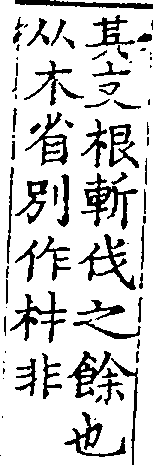 其支根斬伐之餘也
从木省別作枿非